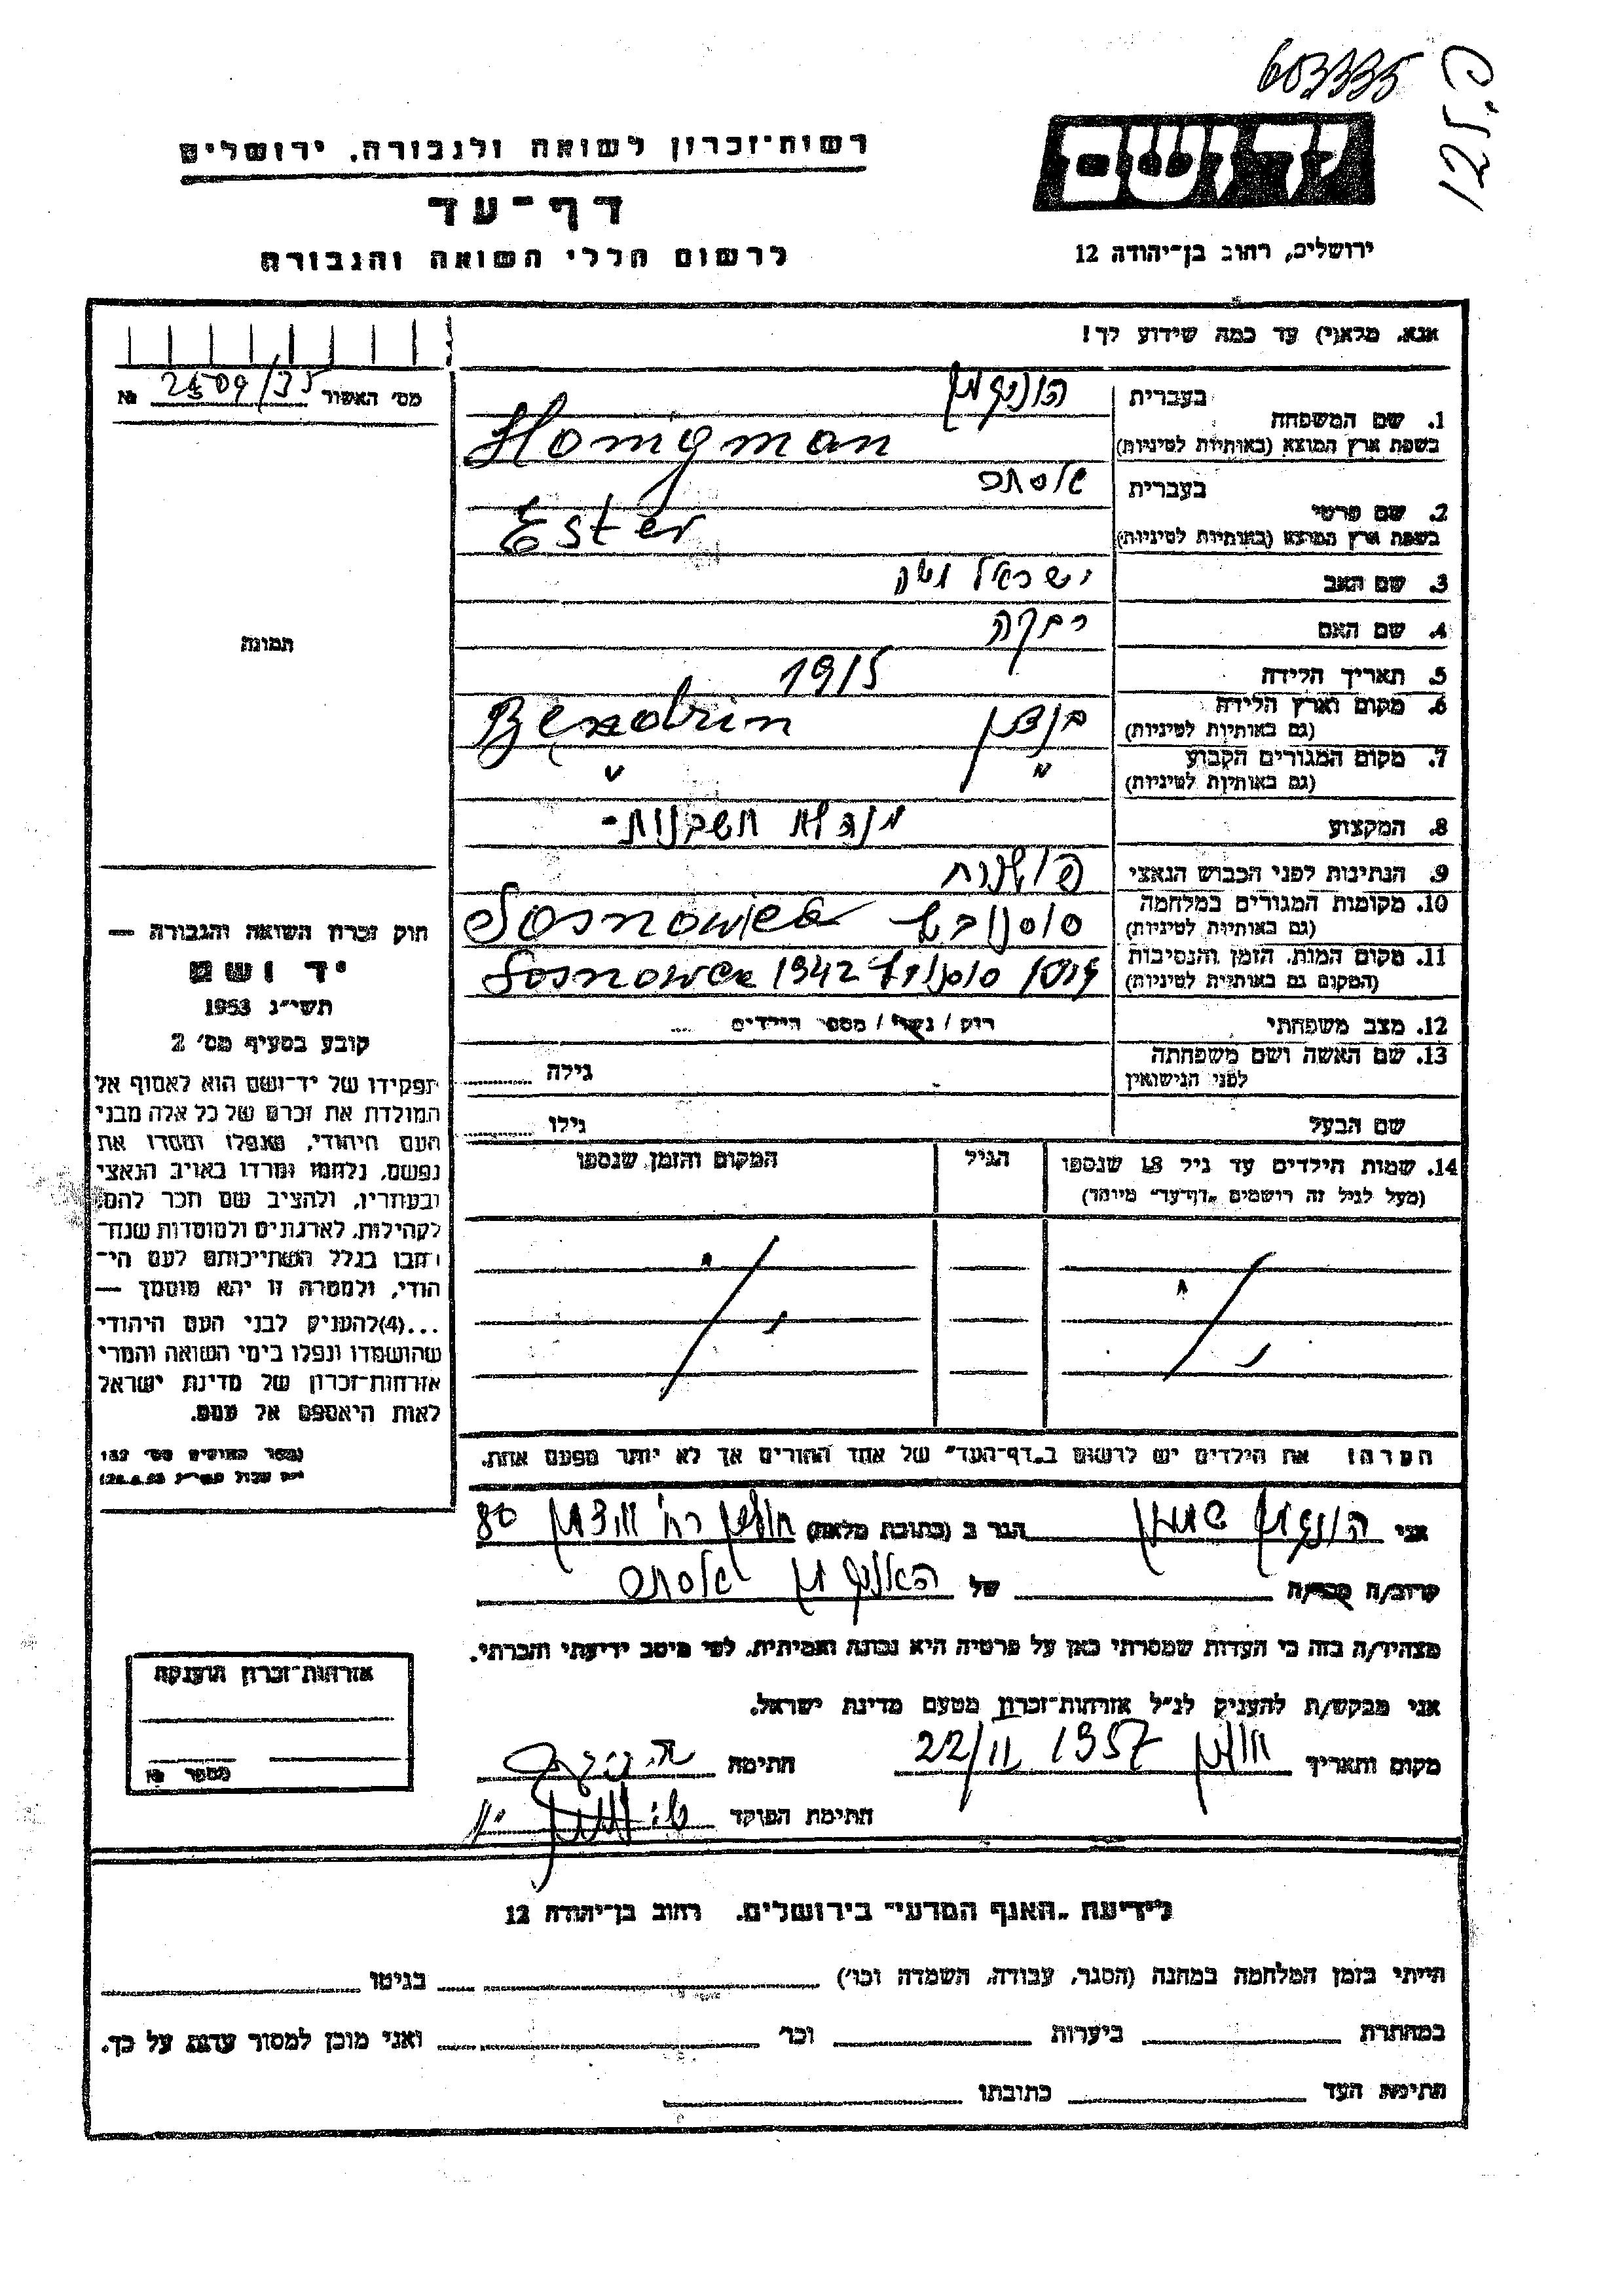 603335
125.פ
יד ושם
ירושלים, רחוב בן־יהודה 12
רשות־זכרון לשואה ולגבורה, ירושלים
דף־עד
לרשום חללי השואה והגבורה
אנא, מלא(י) עד כמה שידוע לך!
מס׳ האשור 2509/35 №
1. שם המשפחה
בעברית הוניגמן
בשפת ארץ המוצא (באותיות לטיניות) Honigman
2. שם פרטי
בעברית אסתר
בשפת ארץ המוצא (באותיות לטיניות) Ester
3. שם האב ישראל משה
4. שם האם רבקה
5. תאריך הלידה 1915
6. מקום וארץ הלידה
(גם באותיות לטיניות) בנדין Bendzin
7. מקום המגורים הקבוע
(גם באותיות לטיניות) " "
8. המקצוע מנהלת חשבונות
9. הנתינות לפני הכבוש הנאצי פולנית
10. מקומות המגורים במלחמה
(גם באותיות לטיניות) סוסנוביץ Sosnowiec
11. מקום המות, הזמן והנסיבות
(המקום גם באותיות לטיניות) 1942 Sosnowiec
12. מצב משפחתי רווק / נשוי / מספר הילדים ...
13. שם האשה ושם משפחתה
לפני הנישואין
גילה
שם הבעל גילו
14. שמות הילדים עד גיל 18 שנספו
(מעל לגיל זה רושמים "דף־עד" מיוחד)
הגיל
המקום והזמן שנספו
הערה: את הילדים יש לרשום ב"דף־העד" של אחד ההורים אך לא יותר מפעם אחת.
תמונה
חוק זכרון השואה והגבורה —
יד ושם
תשי״ג 1953
קובע בסעיף מס׳ 2
תפקידו של יד־ושם הוא לאסוף אל
המולדת את זכרם של כל אלה מבני
העם היהודי, שנפלו ומסרו את
נפשם, נלחמו ומרדו באויב הנאצי
ובעוזריו, ולהציב שם וזכר להם,
לקהילות, לארגונים ולמוסדות שנח־
רבו בגלל השתייכותם לעם הי־
הודי, ולמטרה זו יהא מוסמך —
...(4)להעניק לבני העם היהודי
שהושמדו ונפלו בימי השואה והמרי
אזרחות־זכרון של מדינת ישראל
לאות היאספם אל עמם.
(ספר החוקים מס׳ 132
אני הוניגמן שמעון הגר ב (כתובת מלאה) חולון רח׳ 80
קרוב/ה מכר/ה של האניגמן אסתר
מצהיר/ה בזה כי העדות שמסרתי כאן על פרטיה היא נכונה ואמיתית, לפי מיטב ידיעתי והכרתי.
אני מבקש/ת להעניק לנ״ל אזרחות־זכרון מטעם מדינת ישראל.
מקום ותאריך חולון 22/11 1957 חתימה
חתימת הפוקד
אזרחות־זכרון הוענקה
מספר №
לידיעת "האגף המדעי" בירושלים, רחוב בן־יהודה 12
הייתי בזמן המלחמה במחנה (הסגר, עבודה, השמדה וכו׳) בגיטו
במחתרת ביערות וכו׳ ואני מוכן למסור עדות על כך.
חתימת העד כתובתו